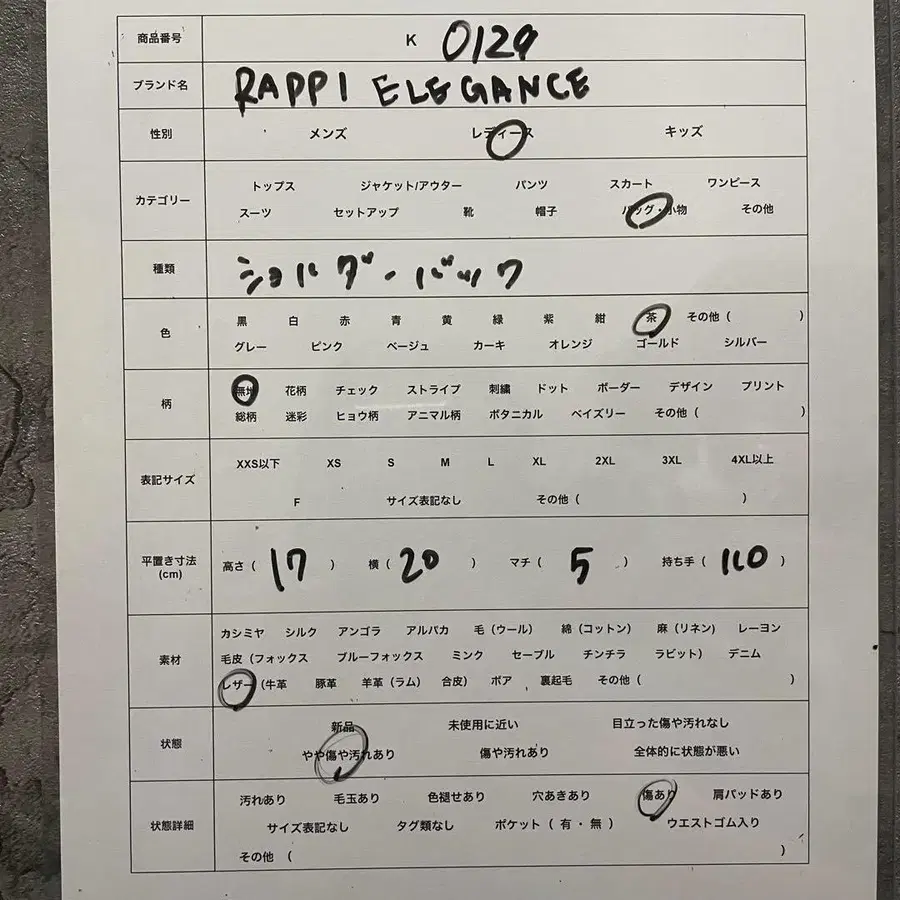 商品番号 K 0129
ブランド名 RAPPI ELEGANCE
性別 メンズ レディース キッズ
カテゴリー
トップス ジャケット/アウター パンツ スカート ワンピース
スーツ セットアップ 靴 帽子 バッグ・小物 その他
種類 ショルダーバック
色
黒 白 赤 青 黄 緑 紫 紺 茶 その他 ( )
グレー ピンク ベージュ カーキ オレンジ ゴールド シルバー
柄
無地 花柄 チェック ストライプ 刺繍 ドット ボーダー デザイン プリント
総柄 迷彩 ヒョウ柄 アニマル柄 ボタニカル ペイズリー その他 ( )
表記サイズ
XXS以下 XS S M L XL 2XL 3XL 4XL以上
F サイズ表記なし その他 ( )
平置き寸法
(cm)
高さ ( 17 ) 横 ( 20 ) マチ ( 5 ) 持ち手 ( 110 )
素材
カシミヤ シルク アンゴラ アルパカ 毛 (ウール) 綿 (コットン) 麻 (リネン) レーヨン
毛皮 (フォックス ブルーフォックス ミンク セーブル チンチラ ラビット) デニム
レザー (牛革 豚革 羊革 (ラム) 合皮) ボア 裏起毛 その他 ( )
状態
新品 未使用に近い 目立った傷や汚れなし
やや傷や汚れあり 傷や汚れあり 全体的に状態が悪い
状態詳細
汚れあり 毛玉あり 色褪せあり 穴あきあり 傷あり 肩パッドあり
サイズ表記なし タグ類なし ポケット ( 有 ・ 無 ) ウエストゴム入り
その他 ( )